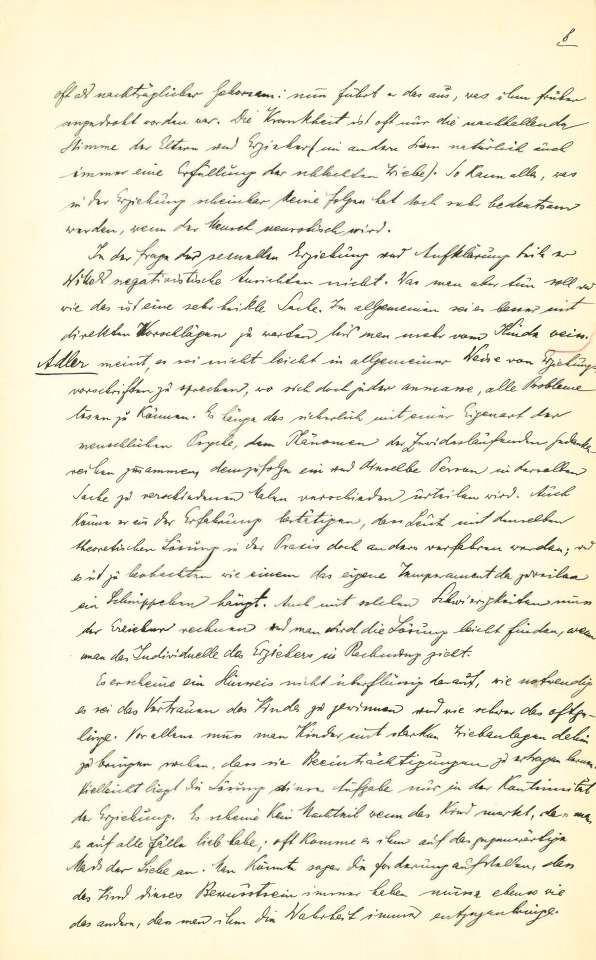 8
oft als nachträglicher Gehorsam: nun führt er das aus, was ihm früher
angedroht worden war. Die Krankheit ist oft nur die nachhallende
Stimme der Eltern und Erzieher (im andern Sinn natürlich auch
immer eine Erfüllung der schlechten Triebe). So kann alles, was
in der Erziehung scheinbar keine Folgen hat doch sehr bedeutsam
werden, wenn der Mensch neurotisch wird.
In der Frage der sexuellen Erziehung und Aufklärung teile er
negativistische Ansichten nicht. Was man aber tun soll und
wie das ist eine sehr heikle Sache. Im allgemeinen sei es besser mit
direkten Vorschlägen zu warten bis man mehr vom Kinde weiss.
Adler meint, es sei nicht leicht in allgemeiner Weise von Erziehungs-
vorschriften zu sprechen, wo sich doch jeder anmasse, alle Probleme
lösen zu können. Es hänge das sicherlich mit einer Eigenart der
menschlichen Psyche, dem Phänomen der zuwiderlaufenden Gedanken-
reihen zusammen, demzufolge ein und dieselbe Person in derselben
Sache zu verschiedenen Malen verschieden urteilen wird. Auch
könne er aus der Erfahrung bestätigen, dass Leute mit denselben
theoretischen Lösung in der Praxis doch anders verfahren werden; und
es ist zu beobachten wie einem das eigene Temperament da zuweilen
ein Schnippchen . Auch mit solchen Schwierigkeiten muss
der Erzieher rechnen und man wird die Lösung leicht finden, wenn
man das Individuelle des Erziehers in Rechnung zieht.
Es erscheine ein Hinweis nicht überflüssig darauf, wie notwendig
es sei das Vertrauen des Kindes zu gewinnen und wie schwer das oft ge-
linge. Vor allem muss man Kinder mit starken Triebanlagen dahin
zu bringen suchen, dass sie Beeinträchtigungen zu ertragen lernen.
Vielleicht liegt die Lösung dieser Aufgabe nur in der Kontinuität
der Erziehung. Es scheine kein Nachteil wenn das Kind merkt, dass man
es auf alle Fälle lieb habe; oft komme es ihm auf das gegenwärtige
Mass der Liebe an. Man könnte sogar die Forderung aufstellen, dass
das Kind dieses Bewusstsein immer haben müsse ebenso wie
das andere, dass man ihm die Wahrheit immer entgegenbringe.